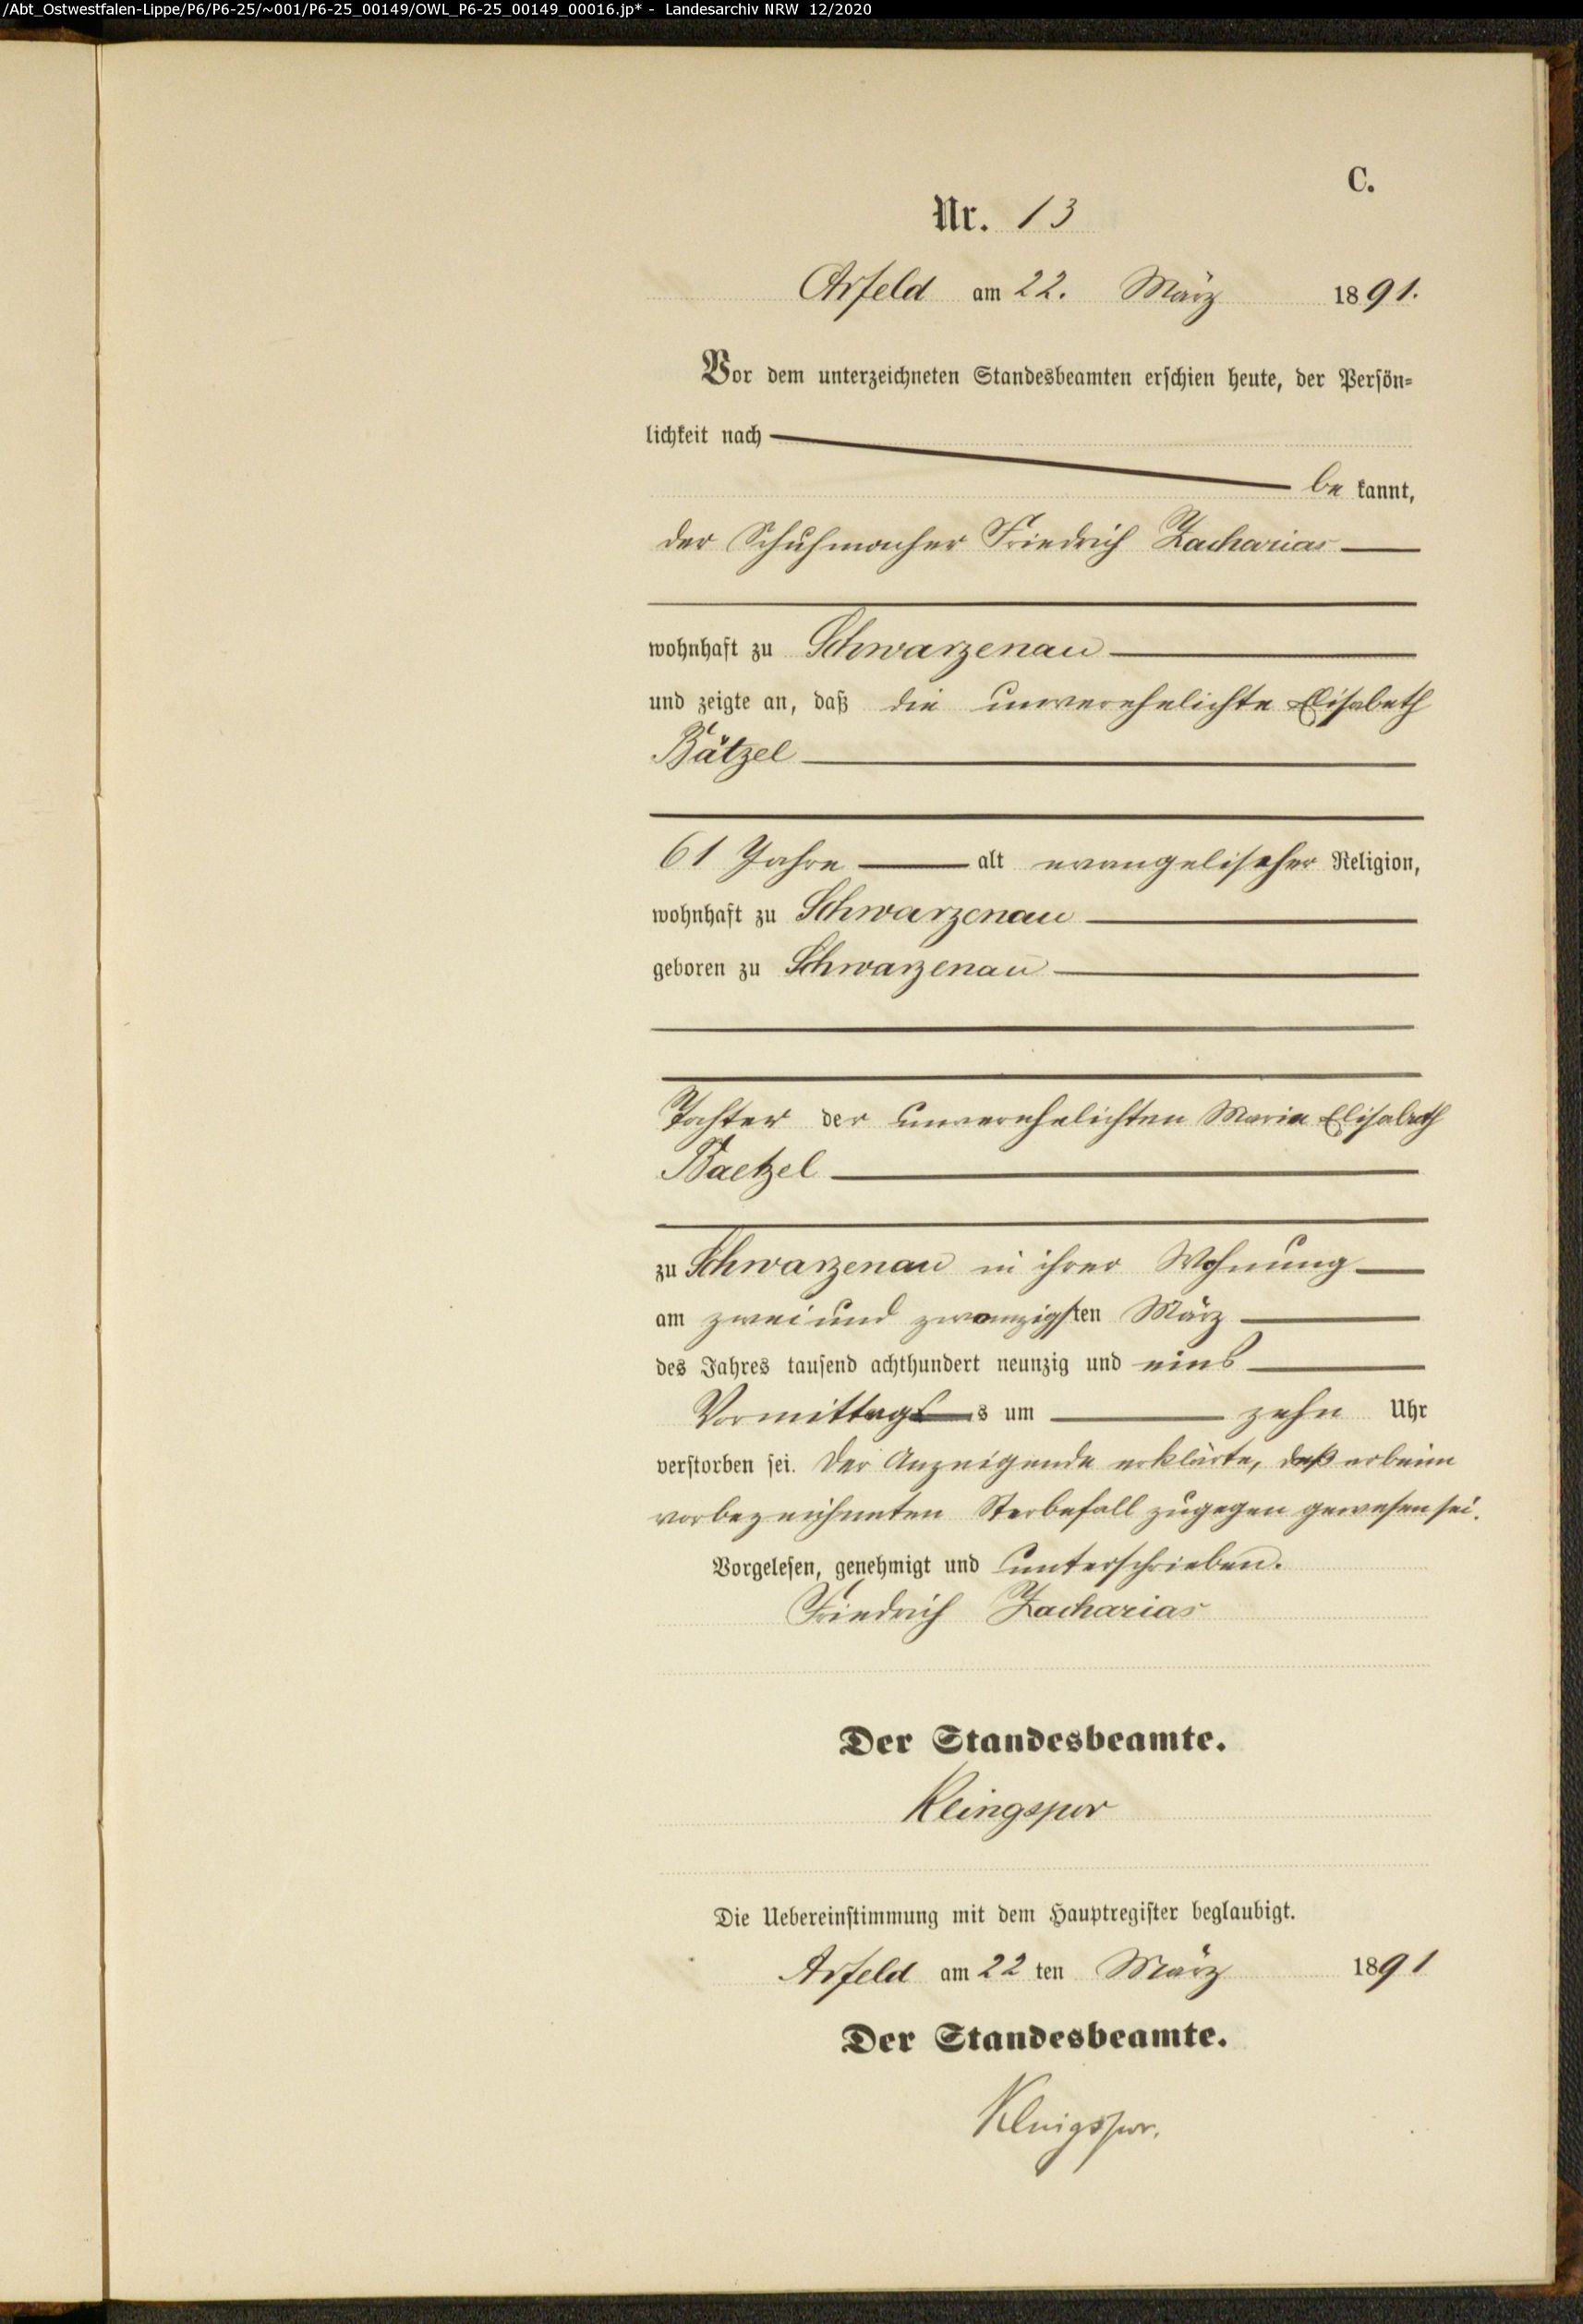 /Abt_Ostwestfalen-Lippe/P6/P6-25/~001/P6-25_00149/OWL_P6-25_00149_00016.jp* - Landesarchiv NRW 12/2020
C.
Nr. 13
Arfeld am 22. März 1891.
Vor dem unterzeichneten Standesbeamten erschien heute, der Persön-
lichkeit nach
be kannt,
der Schuhmacher Friedrich Zacharias
wohnhaft zu Schwarzenau
und zeigte an, daß die unverehelichte Elisabeth
Bätzel
61 Jahre alt evangelischer Religion,
wohnhaft zu Schwarzenau
geboren zu Schwarzenau
Tochter der unverehelichten Maria Elisabeth
Baetzel
zu Schwarzenau in ihrer Wohnung
am zwei und zwanzigsten März
des Jahres tausend achthundert neunzig und eins
Vormittags s um zehn Uhr
verstorben sei. Der Anzeigende erklärte, daß er beim
vorbezeichneten Sterbefall zugegen gewesen sei.
Vorgelesen, genehmigt und unterschrieben.
Friedrich Zacharias
Der Standesbeamte.
Klingspor
Die Uebereinstimmung mit dem Hauptregister beglaubigt.
Arfeld am 22 ten März 1891
Der Standesbeamte.
Klingspor.